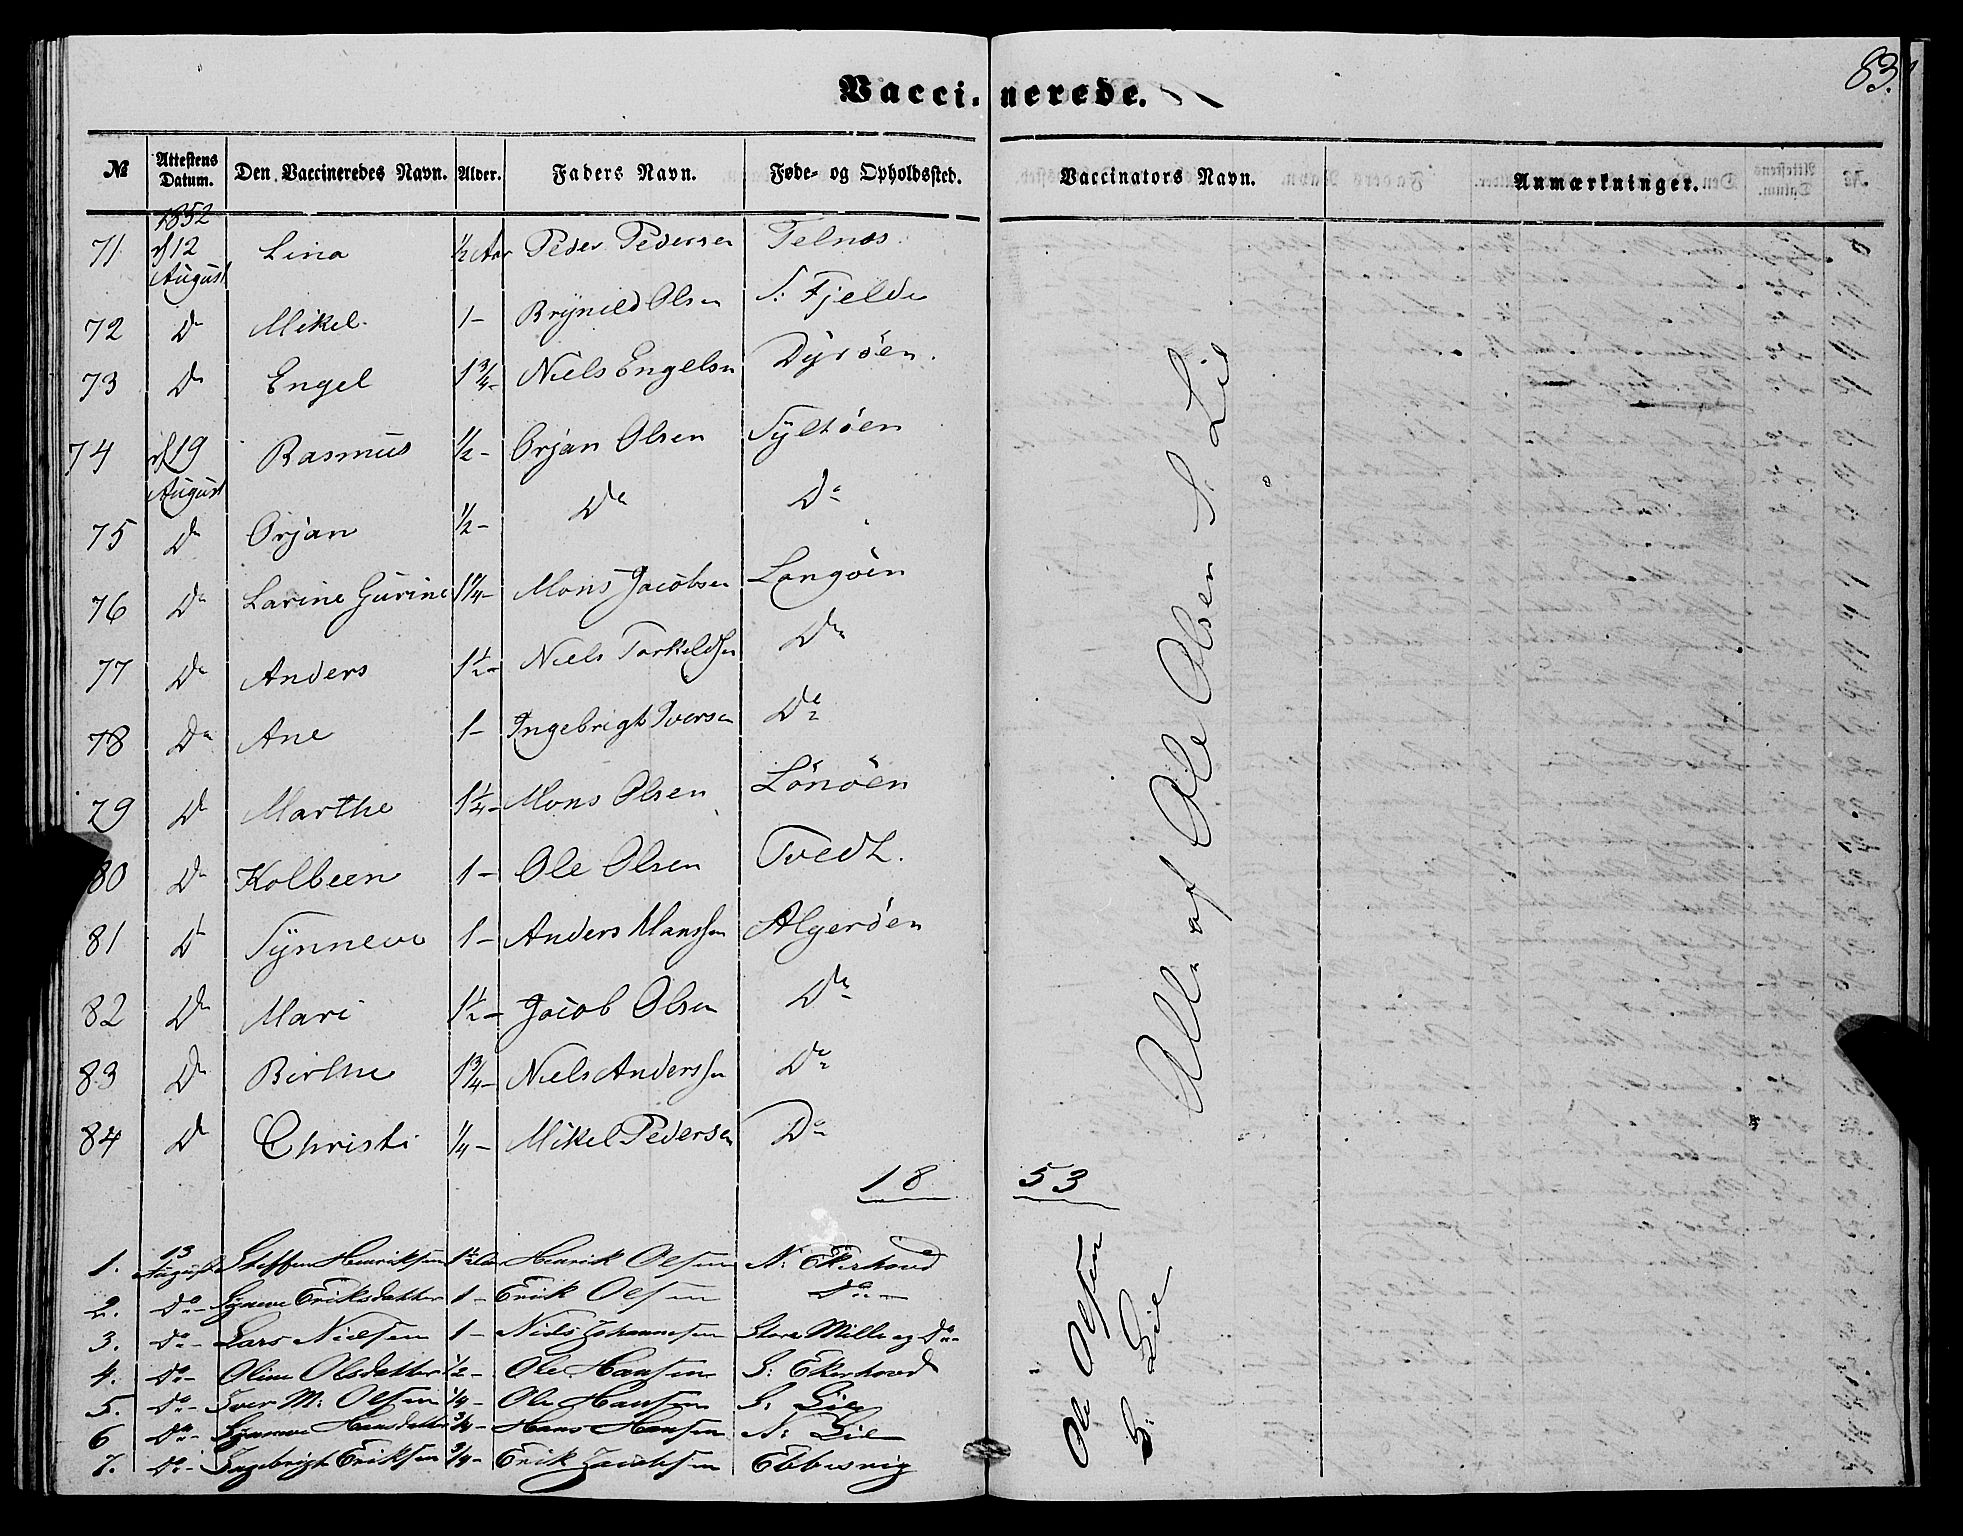 83.
Vaccinerede.
№ Attestens Datum. Den Vaccineredes Navn. Alder. Faders Navn. Føde- og Opholdssted. Vaccinators Navn. Anmærkninger.
1852
71 12 August Lina ½ Aar Peder Pedersen Telnæs
72 Do Mikel 1- Brynild Olsen S: Fjelde
73 Do Engel 1¾- Niels Engelsen Dyrøen.
74 19 August Rasmus ½- Ørjan Olsen Syltøen
75 Do Ørjan ½- Do Do
76 Do Larine Gurine 1¼- Mons Jacobsen Langøen
77 Do Anders 1½- Niels Torkeldsen Do
78 Do Ane 1- Ingebrigt Iversen Do
79 Do Marthe 1¼- Mons Olsen Lønøen
80 Do Kolbeen 1- Ole Olsen Tvedt.
81 Do Synneve 1- Anders Monssen Algerøen
82 Do Mari 1½- Jacob Olsen Do
83 Do Birthe 1¾- Niels Anderssen Do
84 Do Christi ¼- Mikel Pedersen Do
Alle af Ole Olsen S. Lie
18 53
1. 13 August Steffen Henriksen 1½ Aar Henrik Olsen N: Ekerhovd
2. Do- Synneve Eriksdatter 1- Erik Olsen Do-
3. Do- Lars Nielsen 1- Niels Johannesen Store Mille og Do-
4. Do- Oline Olsdatter ½- Ole Hansen S: Ekerhovd
5. Do- Iver M: Olsen ¼- Ole Hansen S: Lie
6 Do- Synneve Hansdatter ¾- Hans Hansen N: Lie
7. Do- Ingebrigt Eriksen ¾- Erik Jacobsen Ebbesvig
Ole Olsen
S: Lie